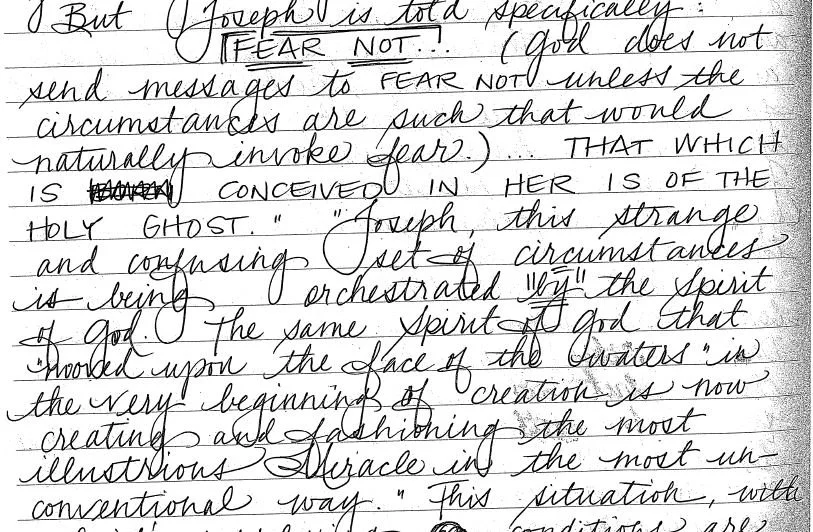 But Joseph is told specifically:
FEAR NOT... (God does not
send messages to FEAR NOT unless the
circumstances are such that would
naturally invoke fear.)... THAT WHICH
IS CONCEIVED IN HER IS OF THE
HOLY GHOST." "Joseph, this strange
and confusing set of circumstances
is being orchestrated "by" the Spirit
of God. The same Spirit of God that
"moved upon the face of the waters" in
the very beginning of creation is now
creating and fashioning the most
illustrious Miracle in the most un-
conventional way." This situation, with
conditions are